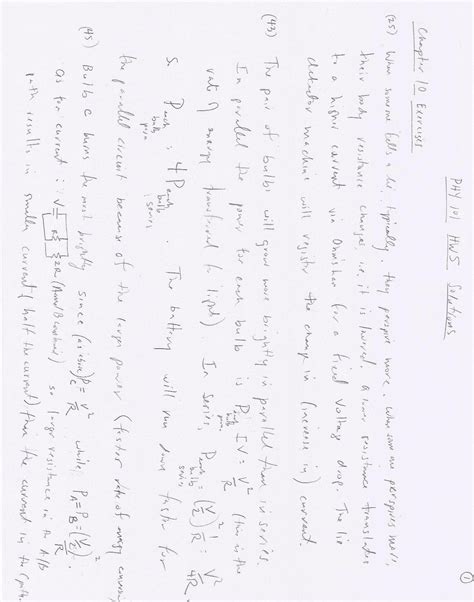 ①
PHY 101 HW5 Solutions
Chapter 10 Exercises
(25) When someone tells a lie typically, they perspire more. When someone perspires more,
their body resistance changes i.e. it is lowered. A lower resistance translates
to a higher current via Ohm's law for a fixed voltage drop. The lie
detector machine will register the change in (increase in) current.
(43) The pair of bulbs will glow more brightly in parallel than in series.
In parallel the power for each bulb is P each bulb para = IV = V²/R (this is the
rate of energy transferred to light). In series, P each bulb series = (V/2)² 1/R = V²/4R
So P each bulb para = 4P each bulb series. The battery will run down faster for
the parallel circuit because of the larger power (faster rate of energy conversion
(45) Bulb C burns the most brightly since (as above) P_C = V²/R while P_A = P_B = (V/2)²/R
as for current i: (A and B combined) so larger resistance in the A/B
path results in smaller current (half the current) than the current in the C path.